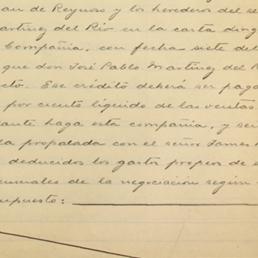 an de Reynoso y los herederos del se
artinez del Rio en la carta dirig
Compañia, con fecha siete del
que don José Pablo Martinez del R
cto. Ese crédito deberá ser paga
por ciento líquido de las ventas
ante haga esta compañia, y se
la propalada con el señor James
deducidos los gastos propios de e
cursales de la negociacion segun
upuesto: